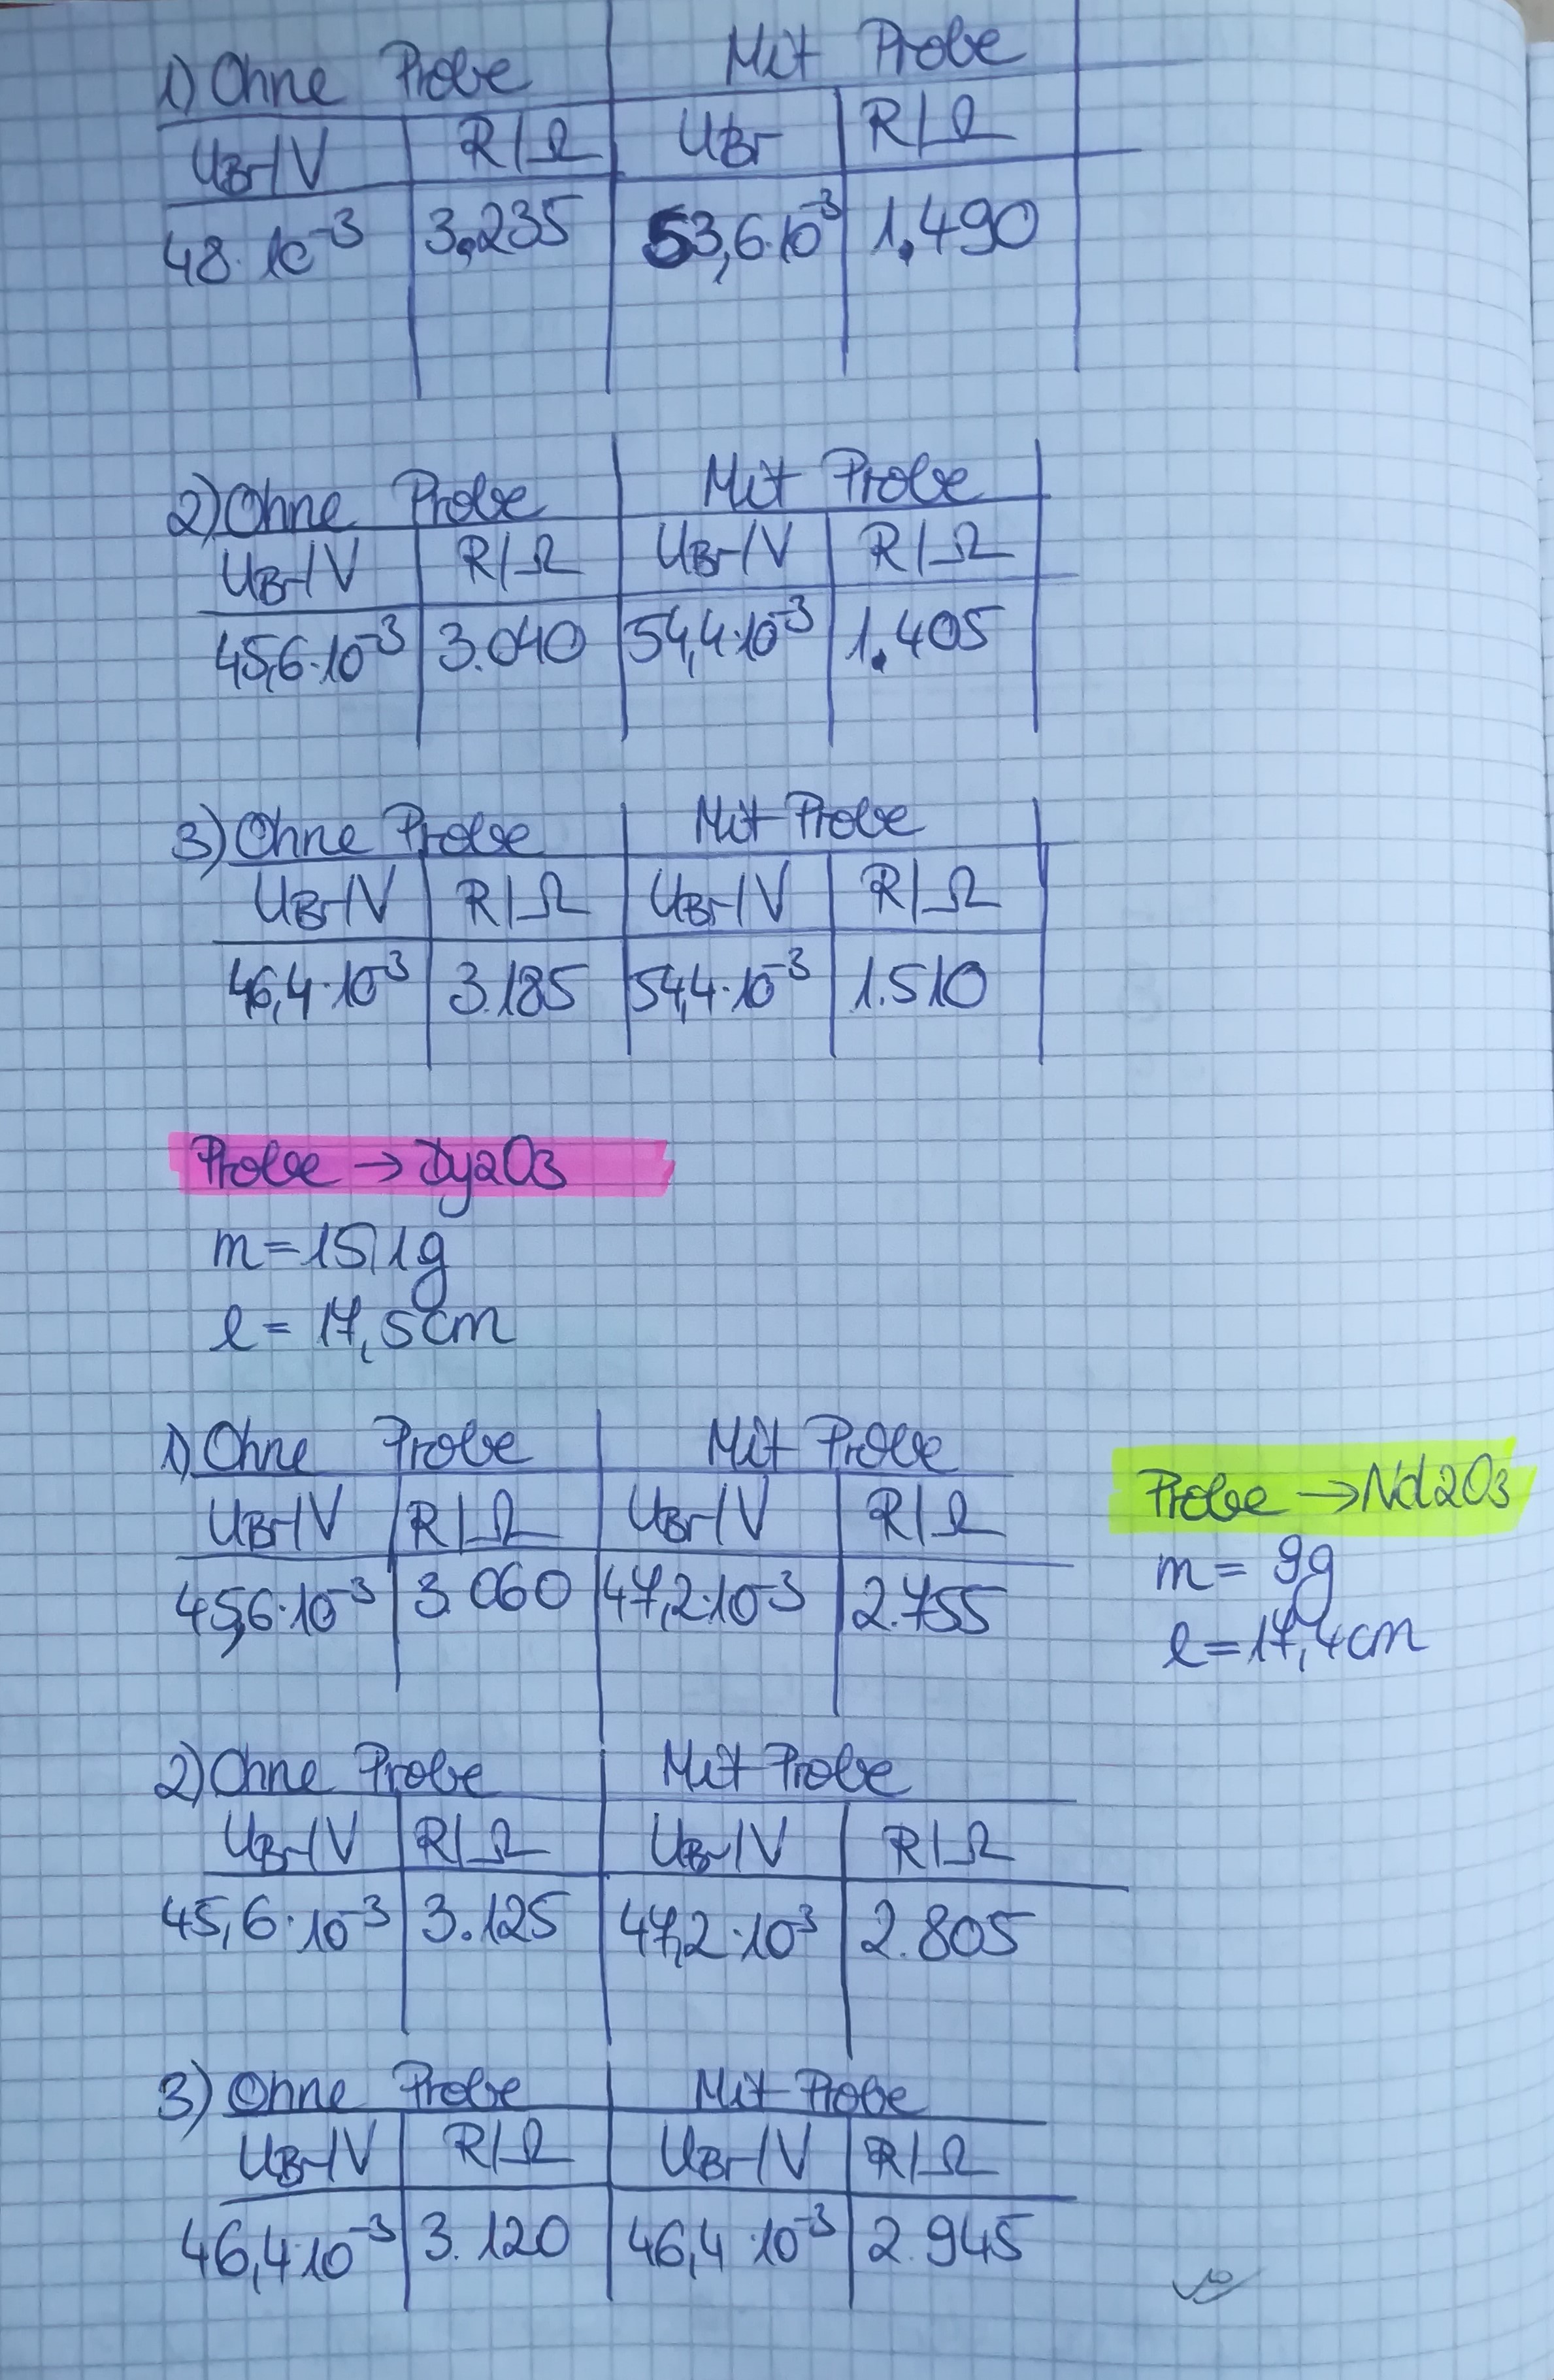 1) Ohne Probe Mit Probe
UBr/V R/Ω UBr R/Ω
48·10⁻³ 3.235 53,6·10⁻³ 1.490
2) Ohne Probe Mit Probe
UBr/V R/Ω UBr/V R/Ω
45,6·10⁻³ 3.040 54,4·10⁻³ 1.405
3) Ohne Probe Mit Probe
UBr/V R/Ω UBr/V R/Ω
46,4·10⁻³ 3.185 54,4·10⁻³ 1.510
Probe → Dy2O3
m = 15,1g
l = 17,5cm
1) Ohne Probe Mit Probe
UBr/V R/Ω UBr/V R/Ω
45,6·10⁻³ 3.060 47,2·10⁻³ 2.755
Probe → Nd2O3
m = 9g
l = 17,4cm
2) Ohne Probe Mit Probe
UBr/V R/Ω UBr/V R/Ω
45,6·10⁻³ 3.125 47,2·10⁻³ 2.805
3) Ohne Probe Mit Probe
UBr/V R/Ω UBr/V R/Ω
46,4·10⁻³ 3.120 46,4·10⁻³ 2.945